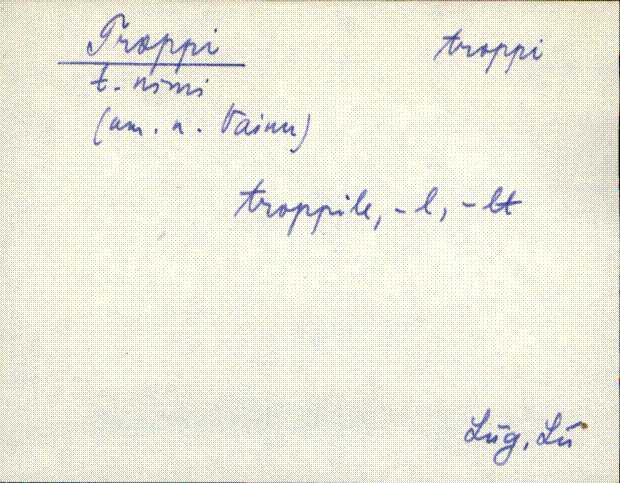 Troppi troppi
t. nimi
(am. n. Vainu)
troppile, -l, -lt
Lüg, Lü